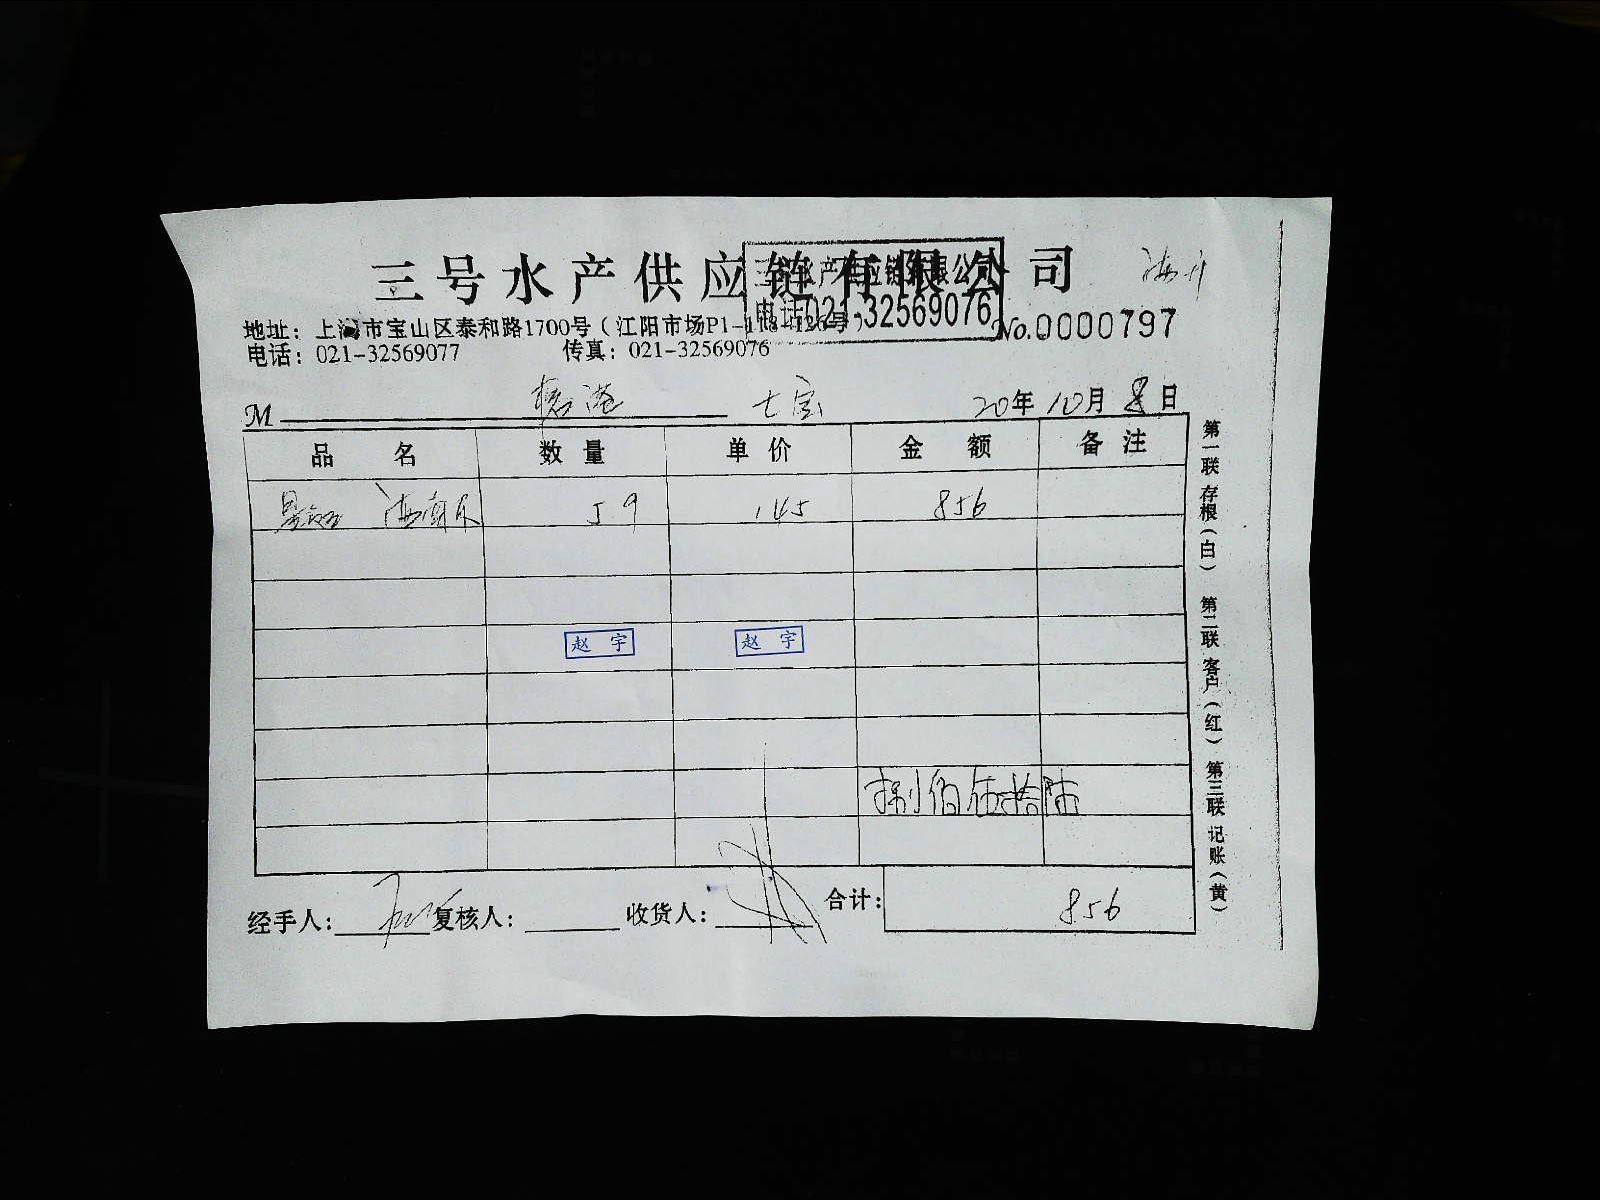 三号水产供应链有限公司
三号水产供应链有限公司
电话021-32569076
地址：上海市宝山区泰和路1700号（江阳市场P1-118-126号）
No.0000797
电话：021-32569077 传真：021-32569076
M 七宝 20年10月8日
品名 数量 单价 金额 备注
59 145 856
赵宇 赵宇
捌佰伍拾陆
经手人： 复核人： 收货人： 合计： 856
第一联存根（白） 第二联客户（红） 第三联记账（黄）